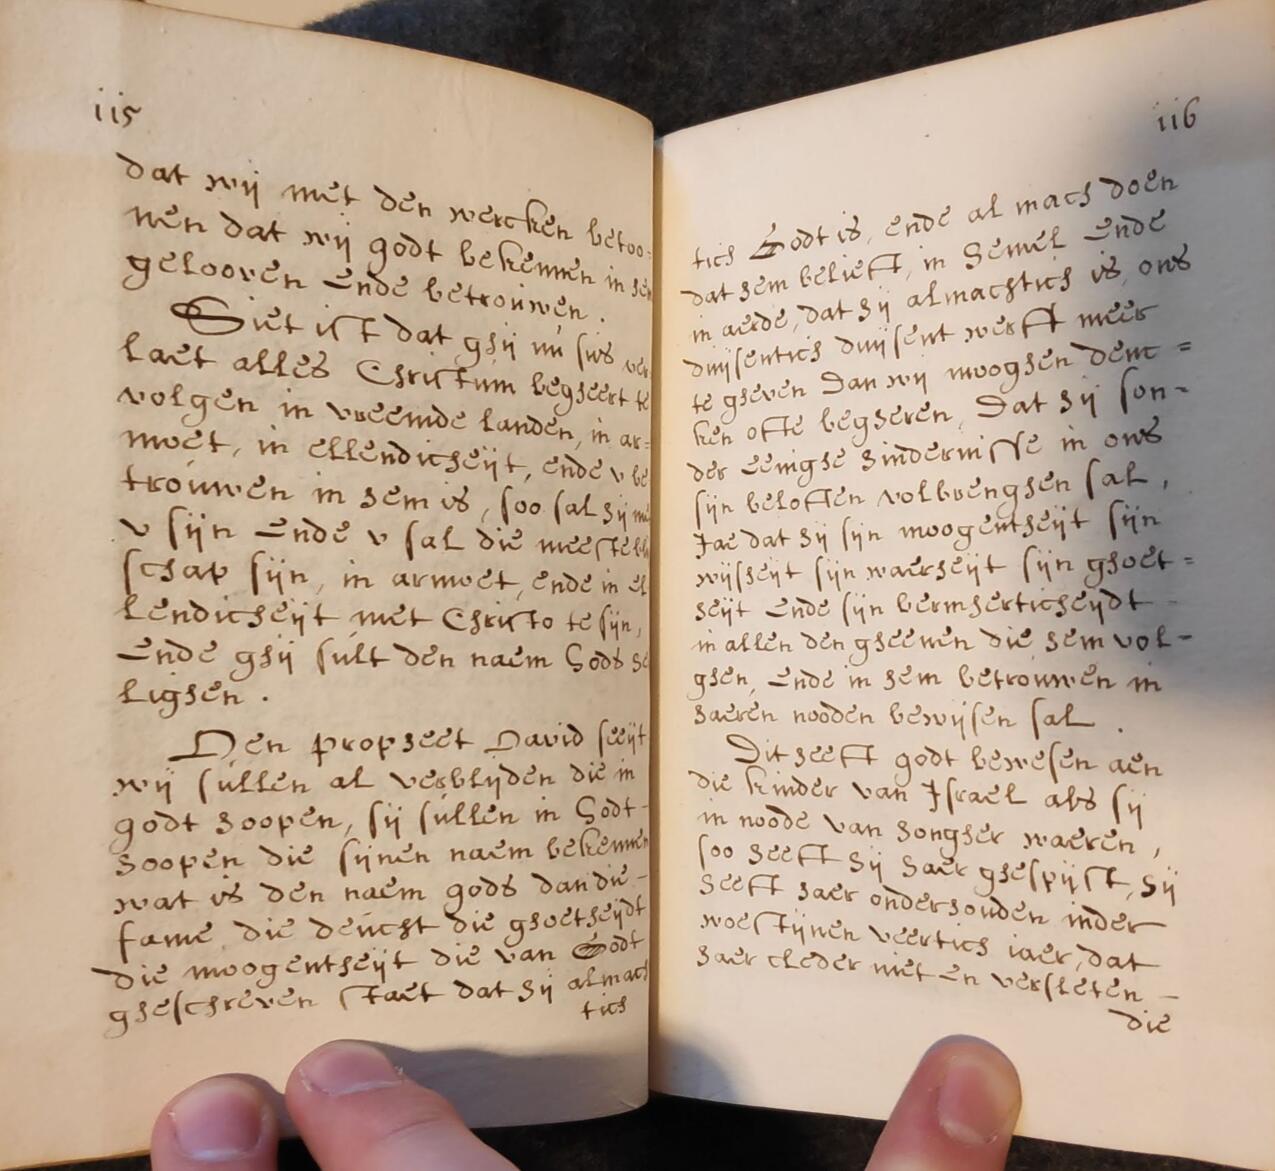 115
dat wij met den wercken betoo=
nen dat wij godt bekennen in hem
gelooven Ende betrouwen.
Siet ist dat ghij nu sus ver
laet alles Christum begheert te
volgen in vreemde landen, in ar=
moet, in ellendicheijt, ende v be
trouwen in hem is, soo sal hij met
v sijn Ende v sal die meeste blij
schap sijn, in armoet, ende in el
lendicheijt met Christo te sijn,
Ende ghij sult den naem Gods he
lighen.
Den propheet David seeijt
wij sullen al verblijden die in
godt hoopen, sij sullen in Godt-
hoopen die sijnen naem bekennen
wat is den naem gods dan die-
fame, die deucht die ghoetheijdt
die moogentheijt die van Godt
gheschreven staet dat hij almach
tich
116
tich Godt is, ende al mach doen
dat hem belieft, in Hemel Ende
in aerde, dat hij almachtich is, ons
duijsentich duijsent werft meer
te gheven Dan wij mooghen denc=
ken ofte begheren, Dat hij son-
der Eenighe hindernisse in ons
sijn beloften volbrenghen sal,
Jae dat hij sijn moogentheijt sijn
wijsheijt sijn waerheijt sijn ghoet=
heijt Ende sijn bermherticheijdt -
in allen den gheenen die hem vol-
ghen, Ende in hem betrouwen in
haeren nooden bewijsen sal.
Dit heeft godt bewesen aen
die kinder van Israel als sij
in noode van hongher waeren,
soo heeft hij haer ghespijst, hij
heeft haer onderhouden inder
woestijnen veertich iaer, dat
haer cleder niet en versleten -
die